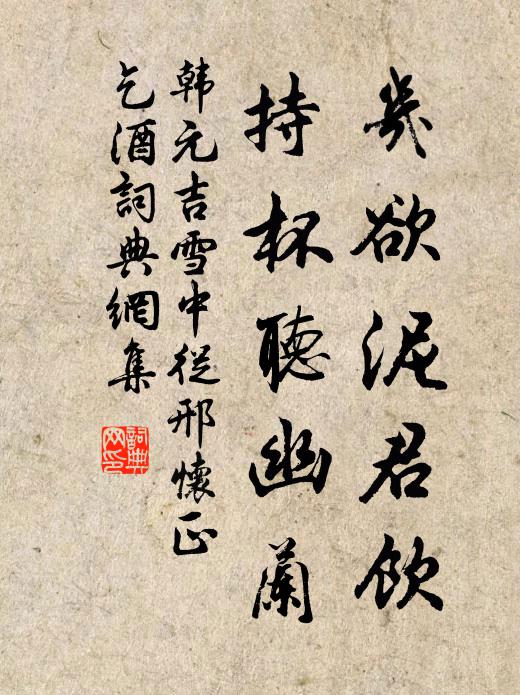 幾欲泥君飲
持杯聽幽蘭
韩元吉雪中從邢懷正
乞酒詞典網集
詞典网印